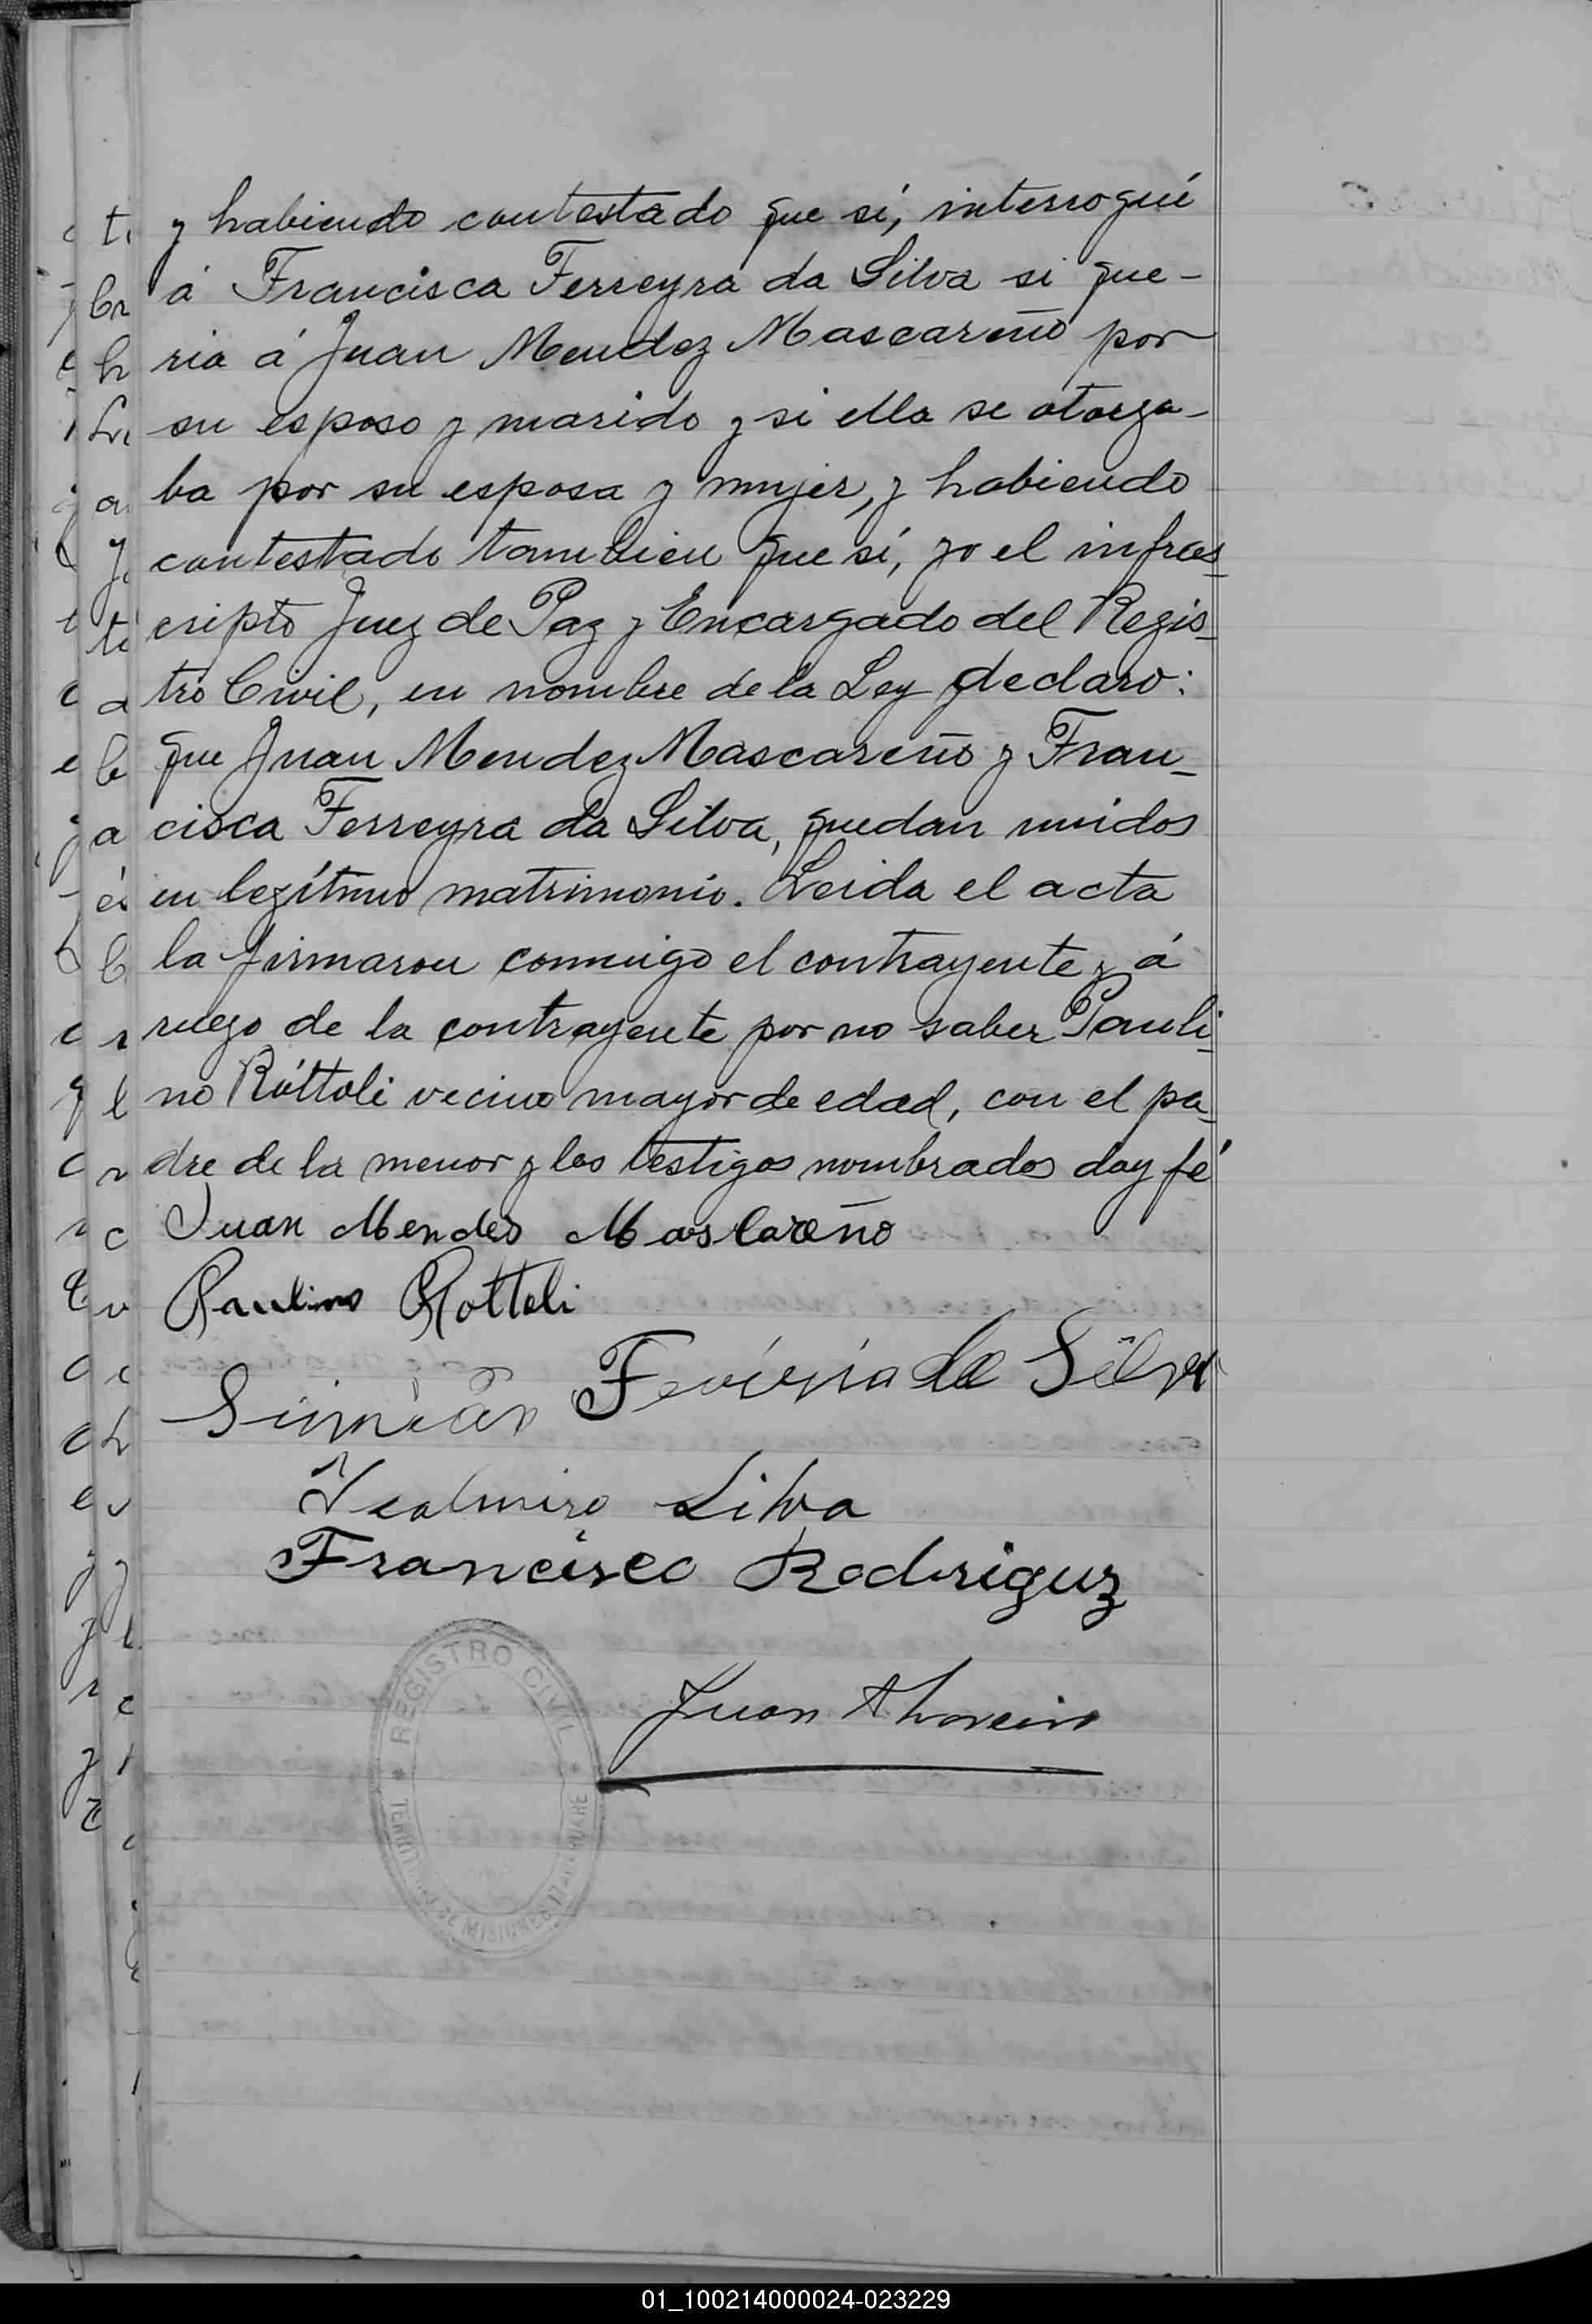 y habiendo contestado que sí, interrogué
á Francisca Ferreyra da Silva si que-
ria á Juan Mendez Mascareño por
su esposo y marido y si ella se otorga-
ba por su esposa y mujer, y habiendo
contestado tambien que sí, yo el infras-
cripto Juez de Paz y Encargado del Regis-
tro Civil, en nombre de la Ley declaro:
que Juan Mendez Mascareño y Fran-
cisca Ferreyra da Silva, quedan unidos
en legítimo matrimonio. Leida el acta
la firmaron conmigo el contrayente y á
ruego de la contrayente por no saber Pauli-
no Róttoli vecino mayor de edad, con el pa-
dre de la menor y los testigos nombrados doy fé
Juan Mendes Mascareño
Paulino Rottoli
Ferreyra da Silva
Silva
Francisco Rodriguz
Juan
REGISTRO CIVIL
TERRITORIO DE MISIONES
01_100214000024-023229